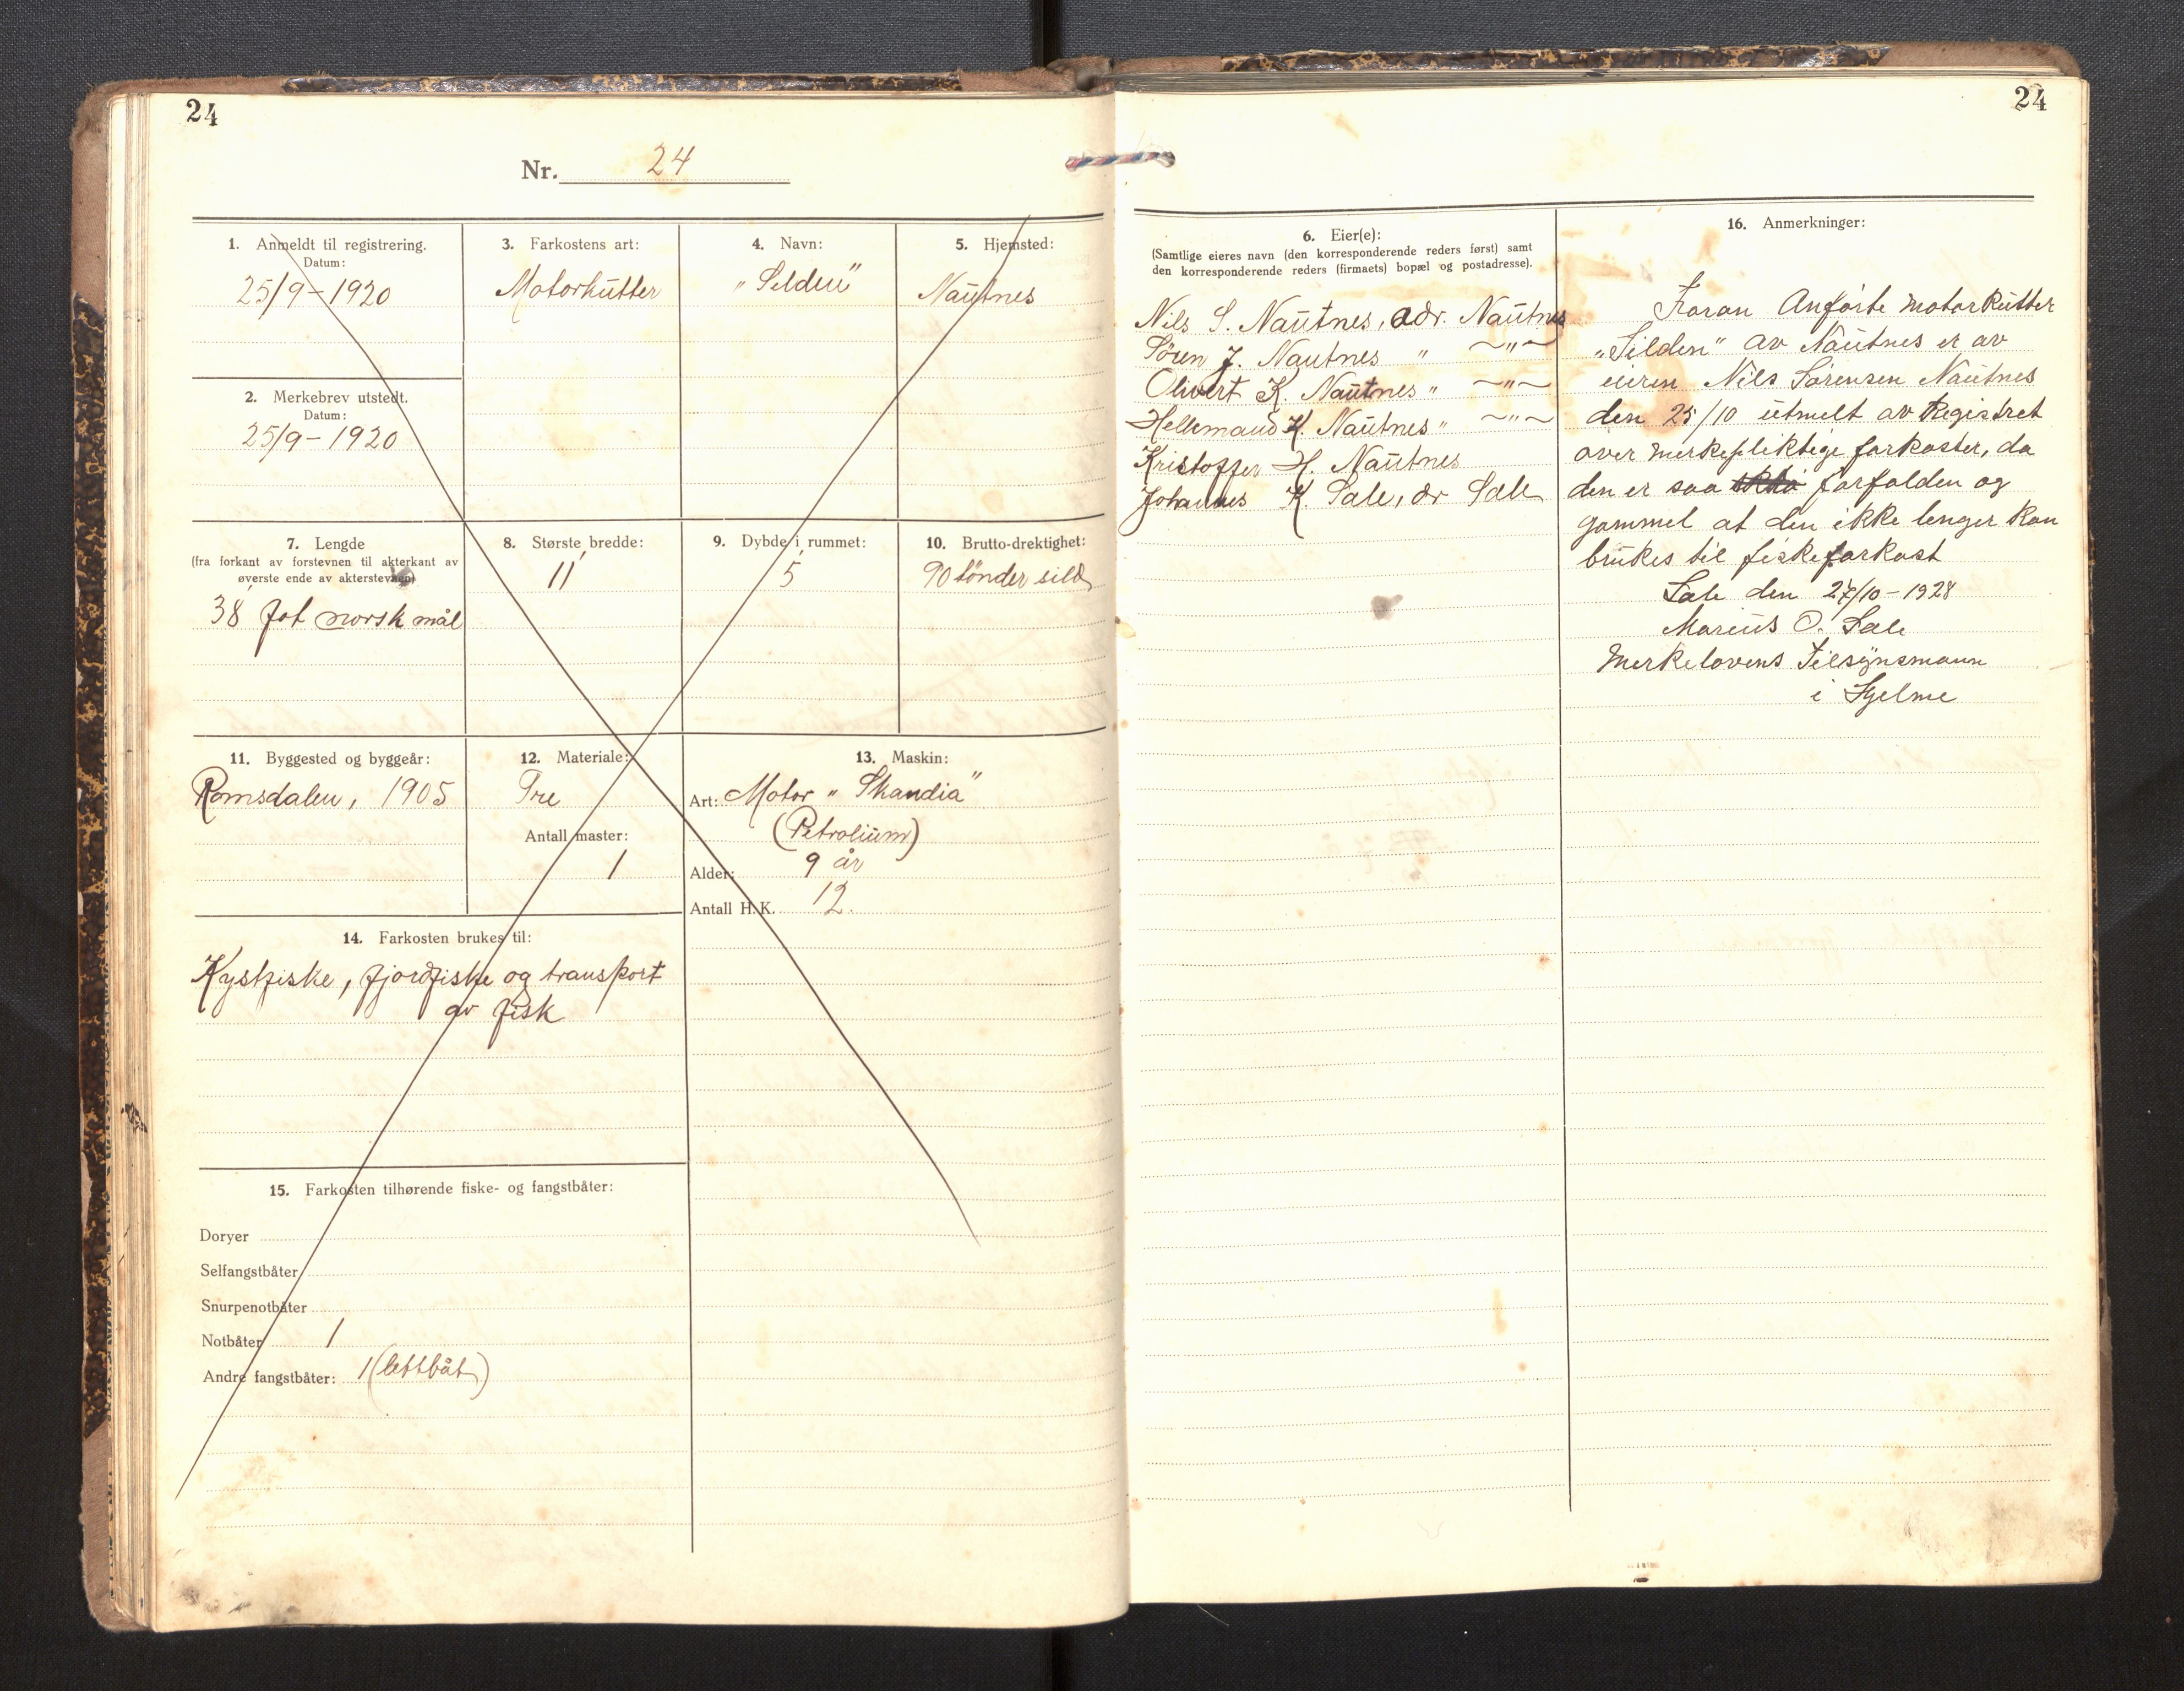 24
Nr. 24
1. Anmeldt til registrering.
Datum:
25/9-1920
2. Merkebrev utstedt.
Datum:
25/9-1920
3. Farkostens art:
Motorkutter
4. Navn:
"Silden"
5. Hjemsted:
Nautnes
7. Lengde
(fra forkant av forstevnen til akterkant av
øverste ende av akterstevnen)
38 fot norsk mål
8. Største bredde:
11'
9. Dybde i rummet:
5'
10. Brutto-drektighet:
90 tönder sild
11. Byggested og byggeår:
Romsdalen, 1905
12. Materiale:
Tre
Antall master:
1
13. Maskin:
Art: Motor "Skandia"
(Petrolium)
Alder: 9 år
Antall H.K. 12.
14. Farkosten brukes til:
Kystfiske, fjordfiske og transport
av fisk
15. Farkosten tilhørende fiske- og fangstbåter:
Doryer
Selfangstbåter
Snurpenotbåter
Notbåter 1
Andre fangstbåter: 1 (lettbåt)
24
6. Eier(e):
(Samtlige eieres navn (den korresponderende reders først) samt
den korresponderende reders (firmaets) bopæl og postadresse).
Nils S. Nautnes, adr. Nautnes
Sören J. Nautnes " ~"~
Olivert K. Nautnes " ~"~
Hellemand K. Nautnes " ~"~
Kristoffer H. Nautnes
Johannes K. Sæle, dr Sæle
16. Anmerkninger:
Foran Anførte motorkutter
"Silden" av Nautnes er av
eieren Nils Sørensen Nautnes
den 25/10 utmelt av Registret
over merkepliktige farkoster, da
den er saa forfalden og
gammel at den ikke lenger kan
brukes til fiskefarkost
Sæle den 27/10-1928
Marius O. Sæle
Merkelovens Tilsynsmann
i Hjelme